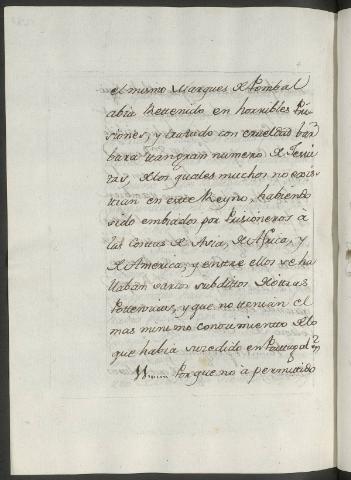 el mismo Marques de Pombal
abia Rettenido en horribles Pri-
siones, y tratado con crueldad bar-
bara tan gran numero de Jesui-
tas, de los quales muchos no exis-
tian en este Reyno, habiendo
sido embiados por Prisioneros à
las Costas de Asia, de Africa, y
de America, y entre ellos se ha-
llaban varios subditos de otras
Pottencias, y que no tenian el
mas minimo conocimiento de lo
que habia sucedido en Portugal
Por que no à permitido